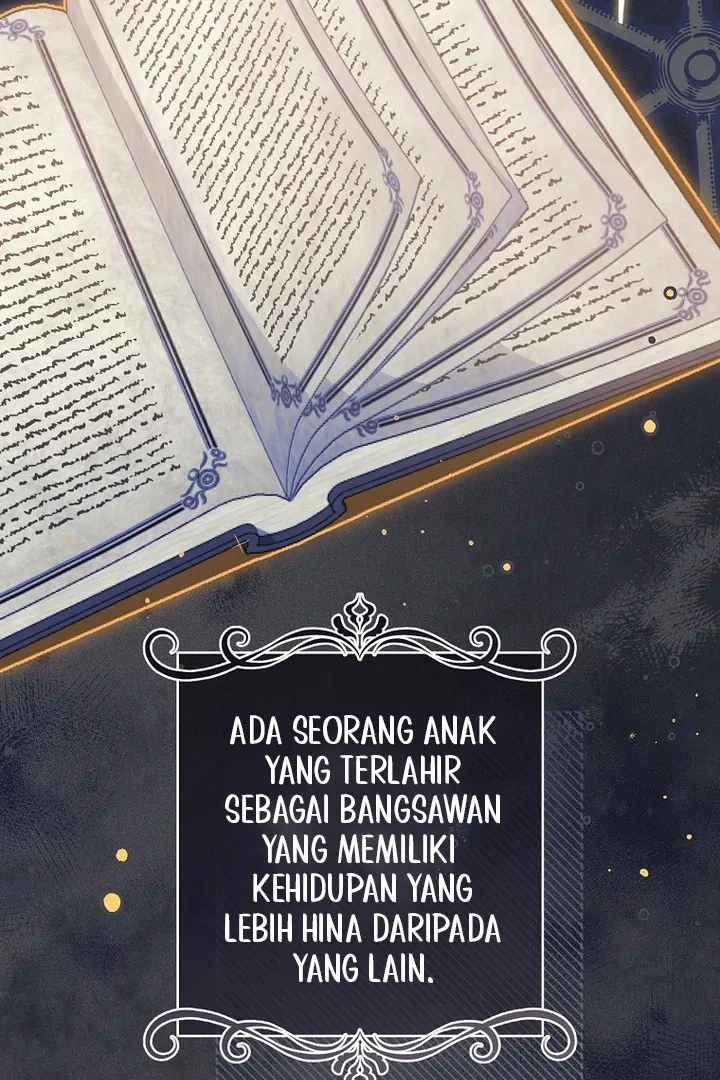 ADA SEORANG ANAK
YANG TERLAHIR
SEBAGAI BANGSAWAN
YANG MEMILIKI
KEHIDUPAN YANG
LEBIH HINA DARIPADA
YANG LAIN.